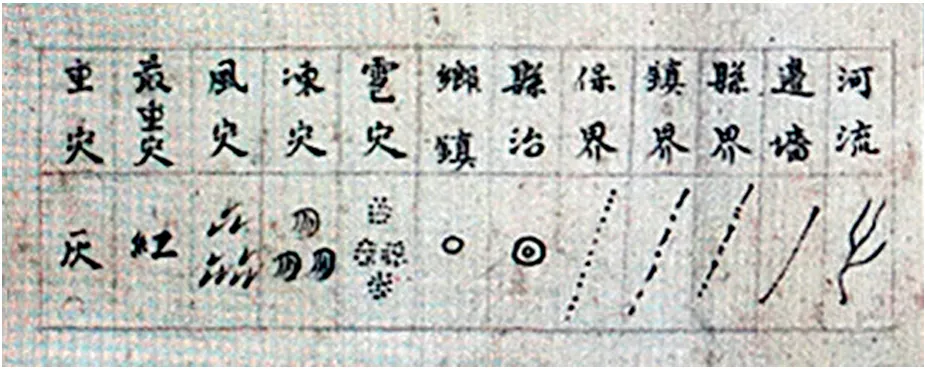 河流
邊墻
縣界
鎮界
保界
縣治
鄉鎮
雹灾
凍灾
風灾
最重灾
紅
重灾
灰